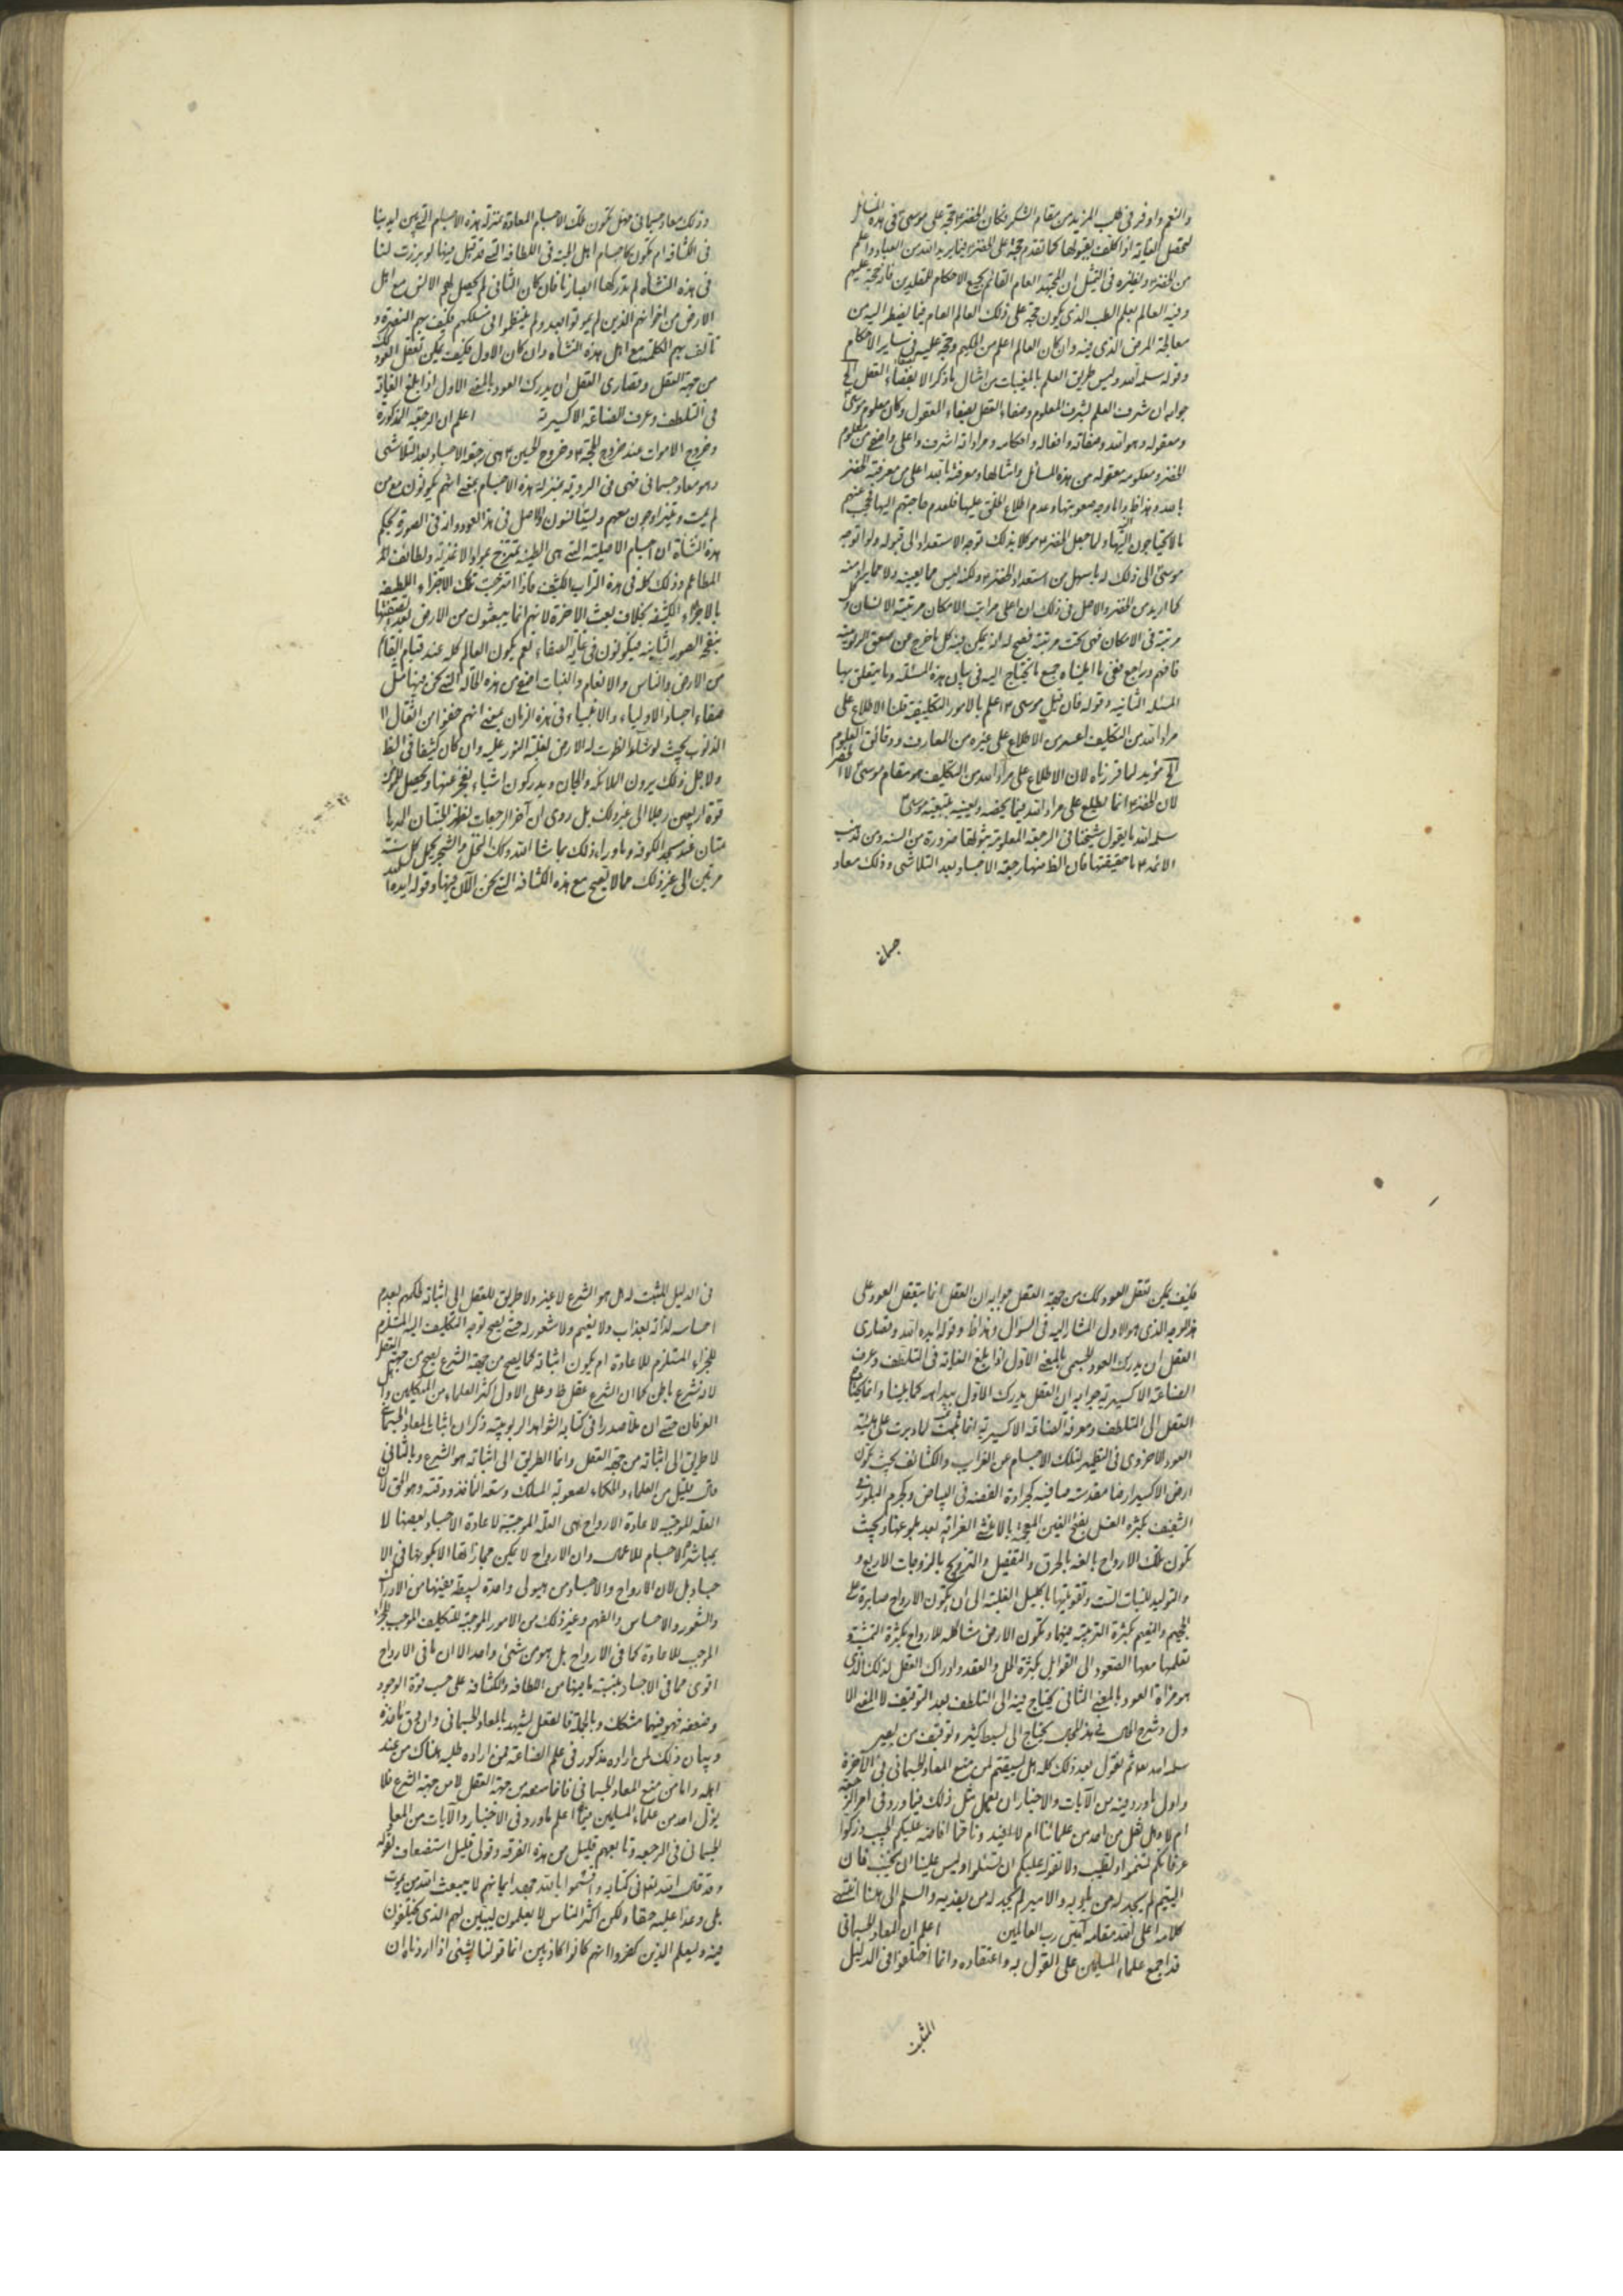 والنعم واوفر فی طلب المزید من مقام الشکر فکان الخضر ع حجة علی موسی ع فی هذه المسائل
لتحصل الغایة اذا کلف بقبولها کما تقدم حجة علی الخضر فیما یرید الله من العباد واعلم
من الخضر ونظیره فی التمثیل ان المجتهد العام القائم بجمیع الاحکام للمقلدین فانه حجة علیهم
وفیه العالم بعلم الطب الذی یکون حجة علی ذلک العالم العام فیما یضطر الیه من
معالجة المرض الذی فیه وان کان العالم اعلم من الحکیم وحجة علیه فی سایر الاحکام
وقوله سلمه الله ولیس طریق العلم بالمغیبات من امثال ما ذکر الا بصفاء العقل الخ
جوابه ان شرف العلم بشرف المعلوم وصفاء العقل بصفاء المعقول وکان معلوم موسی
ومعقوله وهو الله وصفاته وافعاله واحکامه ومراداته اشرف واعلی واضح من معلوم
الخضر ومعلومه معقوله من هذه المسائل وامثالها ومعرفته بالله اعلی من معرفة الخضر
بالله وهذا ظ واما وجه صعوبتها وعدم اطلاع الخلق علیها فلعدم حاجتهم الیها فحجب عنهم
ما لا یحتاجون الیه ولما جعل الخضر ع موکلا بذلک توجه الاستعداد الی قبوله ولو توجه
موسی الی ذلک لناله باسهل من استعداد الخضر ع ولکنه لیس مما یعینه ولا مما یراد منه
کما ارید من الخضر والاصل فی ذلک ان اعلی مراتب الامکان مرتبة الانسان وکل
مرتبة فی الامکان فهی تحت مرتبته فصح له انه یمکن فیه کل ما خرج عن صقع الربوبیة
فافهم وراجع ففی ما املیناه جمیع ما یحتاج الیه فی بیان هذه المسئلة وما یتعلق بها
المسئلة الثانیة وقوله فان قیل موسی ع اعلم بالامور التکلیفیة قلنا الاطلاع علی
مراد الله من التکلیف اعسر من الاطلاع علی غیره من المعارف ودقائق العلوم
الخ مؤید لما قررناه لان الاطلاع علی مراد الله من التکلیف هو مقام موسی لا الخضر
لان الخضر ع انما یطلع علی مراد الله فیما یخصه ویعینه بتبعیة موسی ع
سلمه الله ما یقول شیخنا فی الرجعة المعلومة ثبوتها ضرورة من السنة ومن مذهب
الائمة ع ما حقیقتها فان الظ منها رجعة الاجساد بعد التلاشی وذلک معاد
جسمانی
وذلک معاد جسمانی فهل تکون تلک الاجسام المعادة بمنزلة هذه الاجسام التی بین ایدینا
فی الکثافة ام تکون کاجسام اهل الجنة فی اللطافة التی قد قیل فیها لو برزت لنا
فی هذه النشأة لم تدرکها ابصارنا فان کان الثانی لم یحصل لهم الانس مع اهل
الارض من اخوانهم الذین لم یموتوا بعد ولم ینتظموا فی سلکهم فکیف بهم النصرة و
تألف بهم الکلمة مع اهل هذه النشأة وان کان الاول فکیف یمکن تعقل العود کک
من جهة العقل وقصاری العقل ان یدرک العود بالمعنی الاول اذا بلغ الغایة
فی التلطف وعرف الصناعة الاکسیریة اعلم ان الرجعة المذکورة
وخروج الاموات عند خروج الحجة ع وخروج الحسین ع هی رجعة الاجساد بعد التلاشی
وهو معاد جسمانی فهی فی الرؤیة بمنزلة هذه الاجسام بمعنی انهم یکونون مع من
لم یمت ویتزاوجون معهم ویستأنسون والاصل فی هذا العود وانه فی الصورة بحکم
هذه النشأة ان اجسام الاصلیة التی هی الطینة تمتزج بمواد الاغذیة ولطائف
المطاعم وذلک کله فی هذه التراب الکثیف فاذا امتزجت تلک الاجزاء اللطیفة
بالاجزاء الکثیفة بخلاف بعث الاخرة لانهم انما یبعثون من الارض بعد تصفیتها
بنفخ الصور الثانیة فیکونون فی غایة الصفاء نعم یکون العالم کله عند قیام القائم
من الارض والناس والانعام والنبات اصفی من هذه الحالة التی نحن فیها مثل
صفاء اجساد الاولیاء والانبیاء فی هذه الزمان بمعنی انهم خففوا من اثقال
الذنوب بحیث لو شاء لطویت له الارض لغلبة النور علیه وان کان کثیفا فی الظ
ولاجل ذلک یرون الملائکة والجان ویدرکون اشیاء نعجز عنها ویحصل للمؤمن
قوة اربعین رجلا الی غیر ذلک بل روی ان آخر الرجعات تظهر الجنتان المدهامتان
عند مسجد الکوفة وما وراء ذلک بما شاء الله وکک النخل والشجر یحمل کل سنة
مرتین الی غیر ذلک مما لا یصح مع هذه الکثافة التی نحن الآن فیها وقوله ایده الله
فکیف یمکن تعقل العود کک من جهة العقل جوابه ان العقل انما یتعقل العود علی
هذا الوجه الذی هو الاول المشار الیه فی السؤال وهذا ظ وقوله ایده الله وقصاری
العقل ان یدرک العود الجسمی بالمعنی الاول اذا بلغ الغایة فی التلطف وعرف
الصناعة الاکسیریة جوابه ان العقل یدرک الاول ببداهة کما بینا وانما یحتاج
العقل الی التلطف ومعرفة الصناعة الاکسیریة انما لما دبرت علی هیئة
العود الاخروی فی التطهیر لتلک الاجسام عن الغرایب والکثائف بحیث تکون
ارض الاکسیر ارضا مقدسة صافیة کبرادة الفضة فی البیاض وکجرم البلور فی
الشفیف بکثرة الغسل بفتح الغین المعجمة بالاغنی الغرائبة بعد بلوغها وبحیث
تکون تلک الارواح بالغة بالحرق والتفصیل والتزویج بالمزوجات الاربع و
والتولید للنبات الست وتقویتها باکلیل الغلبة الی ان یکون الارواح صابرة علی
الجحیم والنعیم بکثرة التربیة فیها وتکون الارض مشاکلة للارواح بکثرة التمشیة و
تعلیمها معها الصعود الی القوابل بکثرة الحل والعقد وادراک العقل لذلک الذی
هو مرآة العود بالمعنی الثانی یحتاج فیه الی التلطف بعد التوقیف لا المعنی الا
ول وشرح الحال فی هذا المجال یحتاج الی بسط کثیر وتوقیف من بصیر
سلمه الله تعالی ثم نقول بعد ذلک کله هل یستقیم لمن منع المعاد الجسمانی فی الآخرة
واول ما ورد فیه من الآیات والاخبار ان یعمل مثل ذلک فیما ورد فی امر الرجعة
ام لا وهل نقل من احد من علمائنا ام لا افید وناقما افاضه علیکم المجیب وزکوا
عرفانکم لتنموا ولطیب ولا نقول علیکم ان تسئلوا ولیس علینا ان نجیب فان
الیتیم لم یجد له من یلوذ به والاسیر لم یجد له من یفدیه والسلم الی هنا انتهی
کلامه اعلی الله مقامه آمین رب العالمین اعلم ان المعاد الجسمانی
قد اجمع علماء المسلمین علی القول به واعتقاده وانما اختلفوا فی الدلیل
المثبت
فی الدلیل المثبت له هل هو الشرع لا غیر ولا طریق للعقل الی اثباته لحکمهم بعدم
احساسه لذاته بعذاب ولا نعیم ولا شعور له حتی یصح توجه التکلیف الیه المستلزم
للجزاء المستلزم للاعادة ام یکون اثباته کما یصح من جهة الشرع یصح من جهة العقل
لانه شرع باطن کما ان الشرع عقل ظ وعلی الاول اکثر العلماء من المتکلمین واهل
العرفان حتی ان ملا صدرا فی کتابه الشواهد الربوبیة ذکر ان اثبات المعاد الجسمانی
لا طریق الی اثباته من جهة العقل وانما الطریق الی اثباته هو الشرع وبالثانی
قال قلیل من العلماء والحکماء لصعوبة المسلک وسعة المأخذ ودقته وهو الحق لان
العلة الموجبة لاعادة الارواح هی العلة الموجبة لاعادة الاجساد بعضها لا
بمباشرة الاجسام للاعمال وان الارواح لا یمکن مجازاتها الا بکونها فی الا
جساد بل لان الارواح والاجساد من هیولی واحدة بسیطة بعینها من الادراک
والشعور والاحساس والفهم وغیر ذلک من الامور الموجبة للتکلیف الموجب للجزاء
الموجب للاعادة کما فی الارواح بل هو من شیء واحد الا ان ما فی الارواح
اقوی مما فی الاجساد بنسبة ما بینهما من اللطافة والکثافة علی حسب قوة الوجود
وضعفه فهو فیهما مشکک وبالجملة فالعقل یشهد بالمعاد الجسمانی وان دق مأخذه
وبیان ذلک لمن اراده مذکور فی علم الصناعة فمن اراده طلبه هناک من عند
اهله واما من منع المعاد الجسمانی فانما منعه من جهة العقل لا من جهة الشرع فلا
یؤل احد من علماء المسلمین فیما اعلم ما ورد فی الاخبار والآیات من المعاد
الجسمانی فی الرجعة وتابعهم قلیل من هذه الفرقة وقولی قلیل استضعاف لقوله
وقد قال الله تعالی فی کتابه واقسموا بالله جهد ایمانهم لا یبعث الله من یموت
بلی وعدا علیه حقا ولکن اکثر الناس لا یعلمون لیبین لهم الذی یختلفون
فیه ولیعلم الذین کفروا انهم کانوا کاذبین انما قولنا لشیء اذا اردناه ان